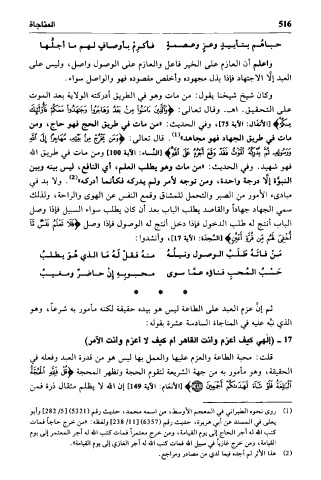 516
المناجاة
حباهُم بتأييدٍ وعزٍ وعصمةٍ فأكرِمْ بأوصافٍ لهم ما أجلَّها
واعلم أن العازم على الخير فاعل والعازم على الوصول واصل، وليس على
العبد إلَّا الاجتهاد فإذا بذل مجهوده وأخلص مقصوده فهو والواصل سواء.
وكان شيخ شيخنا يقول: من مات وهو في الطريق أدركته الولاية بعد الموت
على التحقيق. اهـ. وقال تعالى: ﴿وَالَّذِينَ ءَامَنُوا مِنْ بَعْدُ وَهَاجَرُوا وَجَهَدُوا مَعَكُمْ فَأُوْلَئِكَ
مِنكُمْ﴾ [الأنفال: الآية 75]، وفي الحديث: «من مات في طريق الحج فهو حاج، ومن
مات في طريق الجهاد فهو مجاهد»(1). قال تعالى: ﴿وَمَن يَخْرُجْ مِنْ بَيْتِهِ مُهَاجِرًا إِلَى اللَّهِ
وَرَسُولِهِ ثُمَّ يُدْرِكْهُ الْمَوْتُ فَقَدْ وَقَعَ أَجْرُهُ عَلَى اللَّهِ﴾ [النساء: الآية 100] ومن مات في طريق الله
فهو شهيد. وفي الحديث: «من مات وهو يطلب العلم، أي النافع، ليس بينه وبين
النبوّة إلَّا درجة واحدة، ومن توجه لأمر ولم يدركه فكأنما أدركه»(2). ولا بد في
مبادىء الأمور من الصبر والتحمل للمشاق وقمع النفس عن الهوى والراحة، ولذلك
سمي الجهاد جهاداً والقاصد يطلب الباب بعد أن كان يطلب سواء السبيل فإذا وصل
الباب أنتج له طلب الدخول فإذا دخل أنتج له الوصول فإذا وصل ﴿فَلَا تَعْلَمُ نَفْسٌ مَّا
أُخْفِيَ لَهُم مِّن قُرَّةِ أَعْيُنٍ﴾ [السَّجدَة: الآية 17]، وأنشدوا:
مَنْ فاتَهُ طَلَبُ الوصول ونيلُهُ منهُ فقلْ لَهُ ما الذي هُوَ يطلبُ
حَسْبُ المُحبِ فناؤه عمَّا سوى محبوبِه إنْ حاضرٌ ومغيبُ
* * *
ثم إنَّ عزم العبد على الطاعة ليس هو بيده حقيقة لكنه مأمور به شرعاً، وهو
الذي نبَّه عليه في المناجاة السادسة عشرة بقوله:
17 ـ (إلهي كيف أعزم وأنت القاهر أم كيف لا أعزم وأنت الآمر)
قلت: محبة الطاعة والعزم عليها والعمل بها ليس هو من قدرة العبد وفعله في
الحقيقة، وهو مأمور به من جهة الشريعة لتقوم الحجة وتظهر المحجة ﴿قُلْ فَلِلَّهِ الْحُجَّةُ
الْبَالِغَةُ فَلَوْ شَاءَ لَهَدَىكُمْ أَجْمَعِينَ﴾ [الأنعَام: الآية 149] إن الله لا يظلم مثقال ذرة فمن
(1) روى نحوه الطبراني في المعجم الأوسط، من اسمه محمد، حديث رقم (5321) [5/ 282] وأبو
يعلى في المسند عن أبي هريرة، حديث رقم (6357) [11/ 238] ولفظه: «من خرج حاجاً فمات
كتب الله له أجر الحاج إلى يوم القيامة، ومن خرج معتمراً فمات كتب الله له أجر المعتمر إلى يوم
القيامة، ومن خرج غازياً في سبيل الله فمات كتب الله له أجر الغازي إلى يوم القيامة».
(2) هذا الأثر لم أجده فيما لدي من مصادر ومراجع.